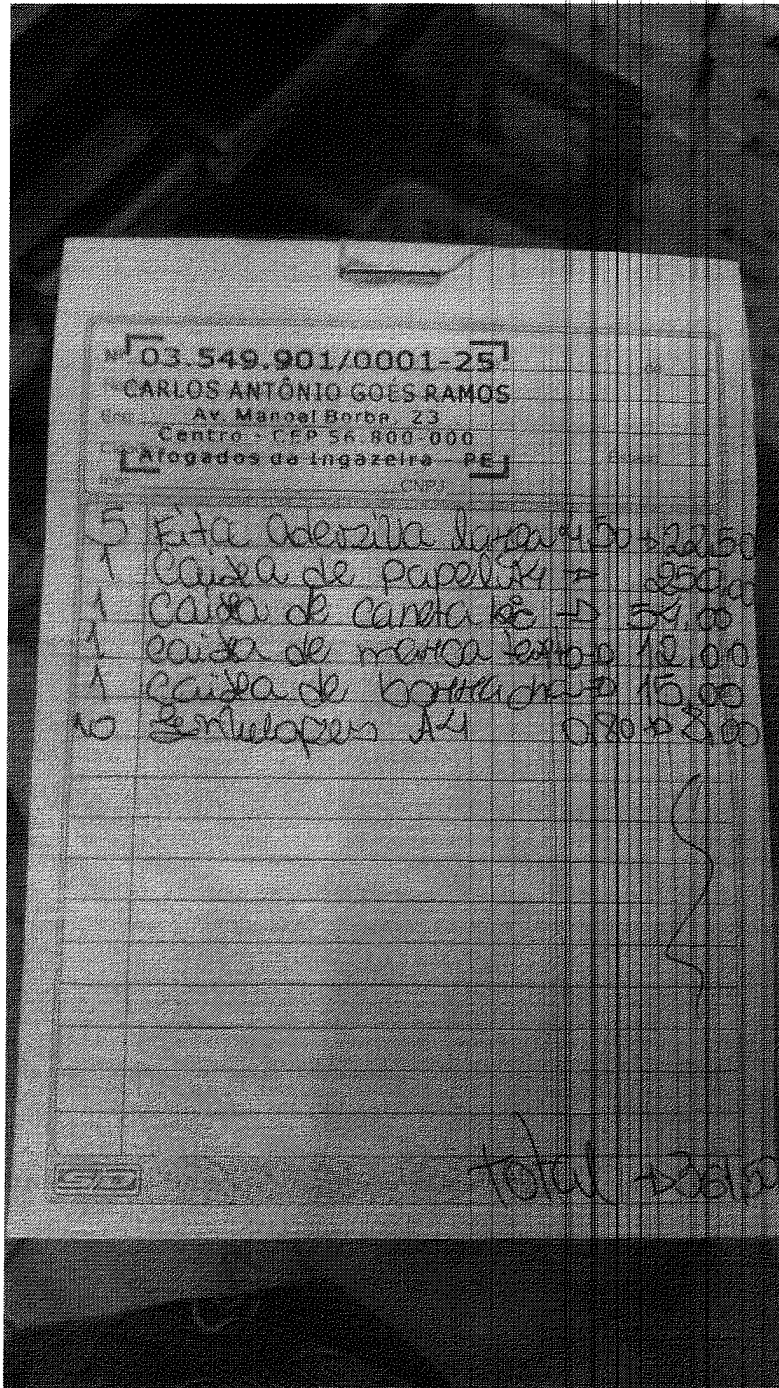 Nº 03.549.901/0001-25
CARLOS ANTÔNIO GOÉS RAMOS
Av. Manoel Borba, 23
Centro - CEP 56.800-000
Afogados da Ingazeira - PE
CNPJ
5 Fita aderziva larga 4,50 → 22,50
1 Caixa de papel A4 → 250,00
1 Caixa de caneta → 54,00
1 caixa de marca texto → 12,00
1 caixa de borracha → 15,00
10 Envelopes A4 0,80 → 8,00
Total → 361,50